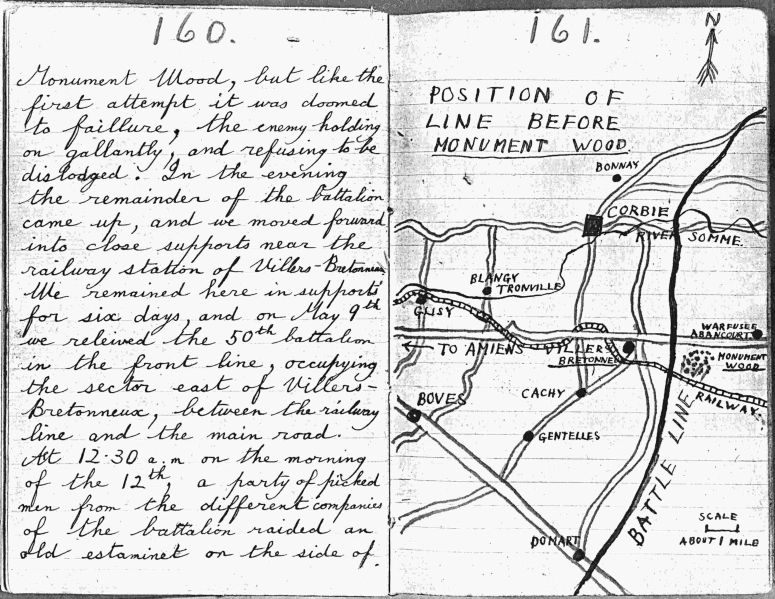 160.
Monument Wood, but like the
first attempt it was doomed
to faillure, the enemy holding
on gallantly, and refusing to be
dislodged. In the evening
the remainder of the battalion
came up, and we moved forward
into close supports near the
railway station of Villers-Bretonneux
We remained here in supports
for six days, and on May 9th
we releived the 50th battalion
in the front line, occupying
the sector east of Villers-
Bretonneux, between the railway
line and the main road.
At 12.30 a.m on the morning
of the 12th, a party of picked
men from the different companies
of the battalion raided an
old estaminet on the side of
161.
N
POSITION OF
LINE BEFORE
MONUMENT WOOD.
BONNAY
CORBIE
RIVER SOMME.
BLANGY
TRONVILLE
GLISY
WARFUSEE
ABANCOURT
← TO AMIENS
VILLERS
BRETONNEUX
MONUMENT
WOOD
RAILWAY.
CACHY
BOVES
GENTELLES
BATTLE LINE
SCALE
ABOUT 1 MILE
DOMART